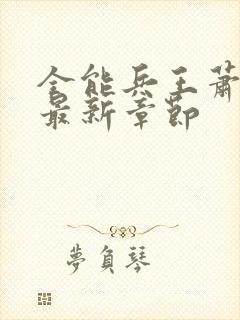 全能兵王蕭
最新章節
夢負琴